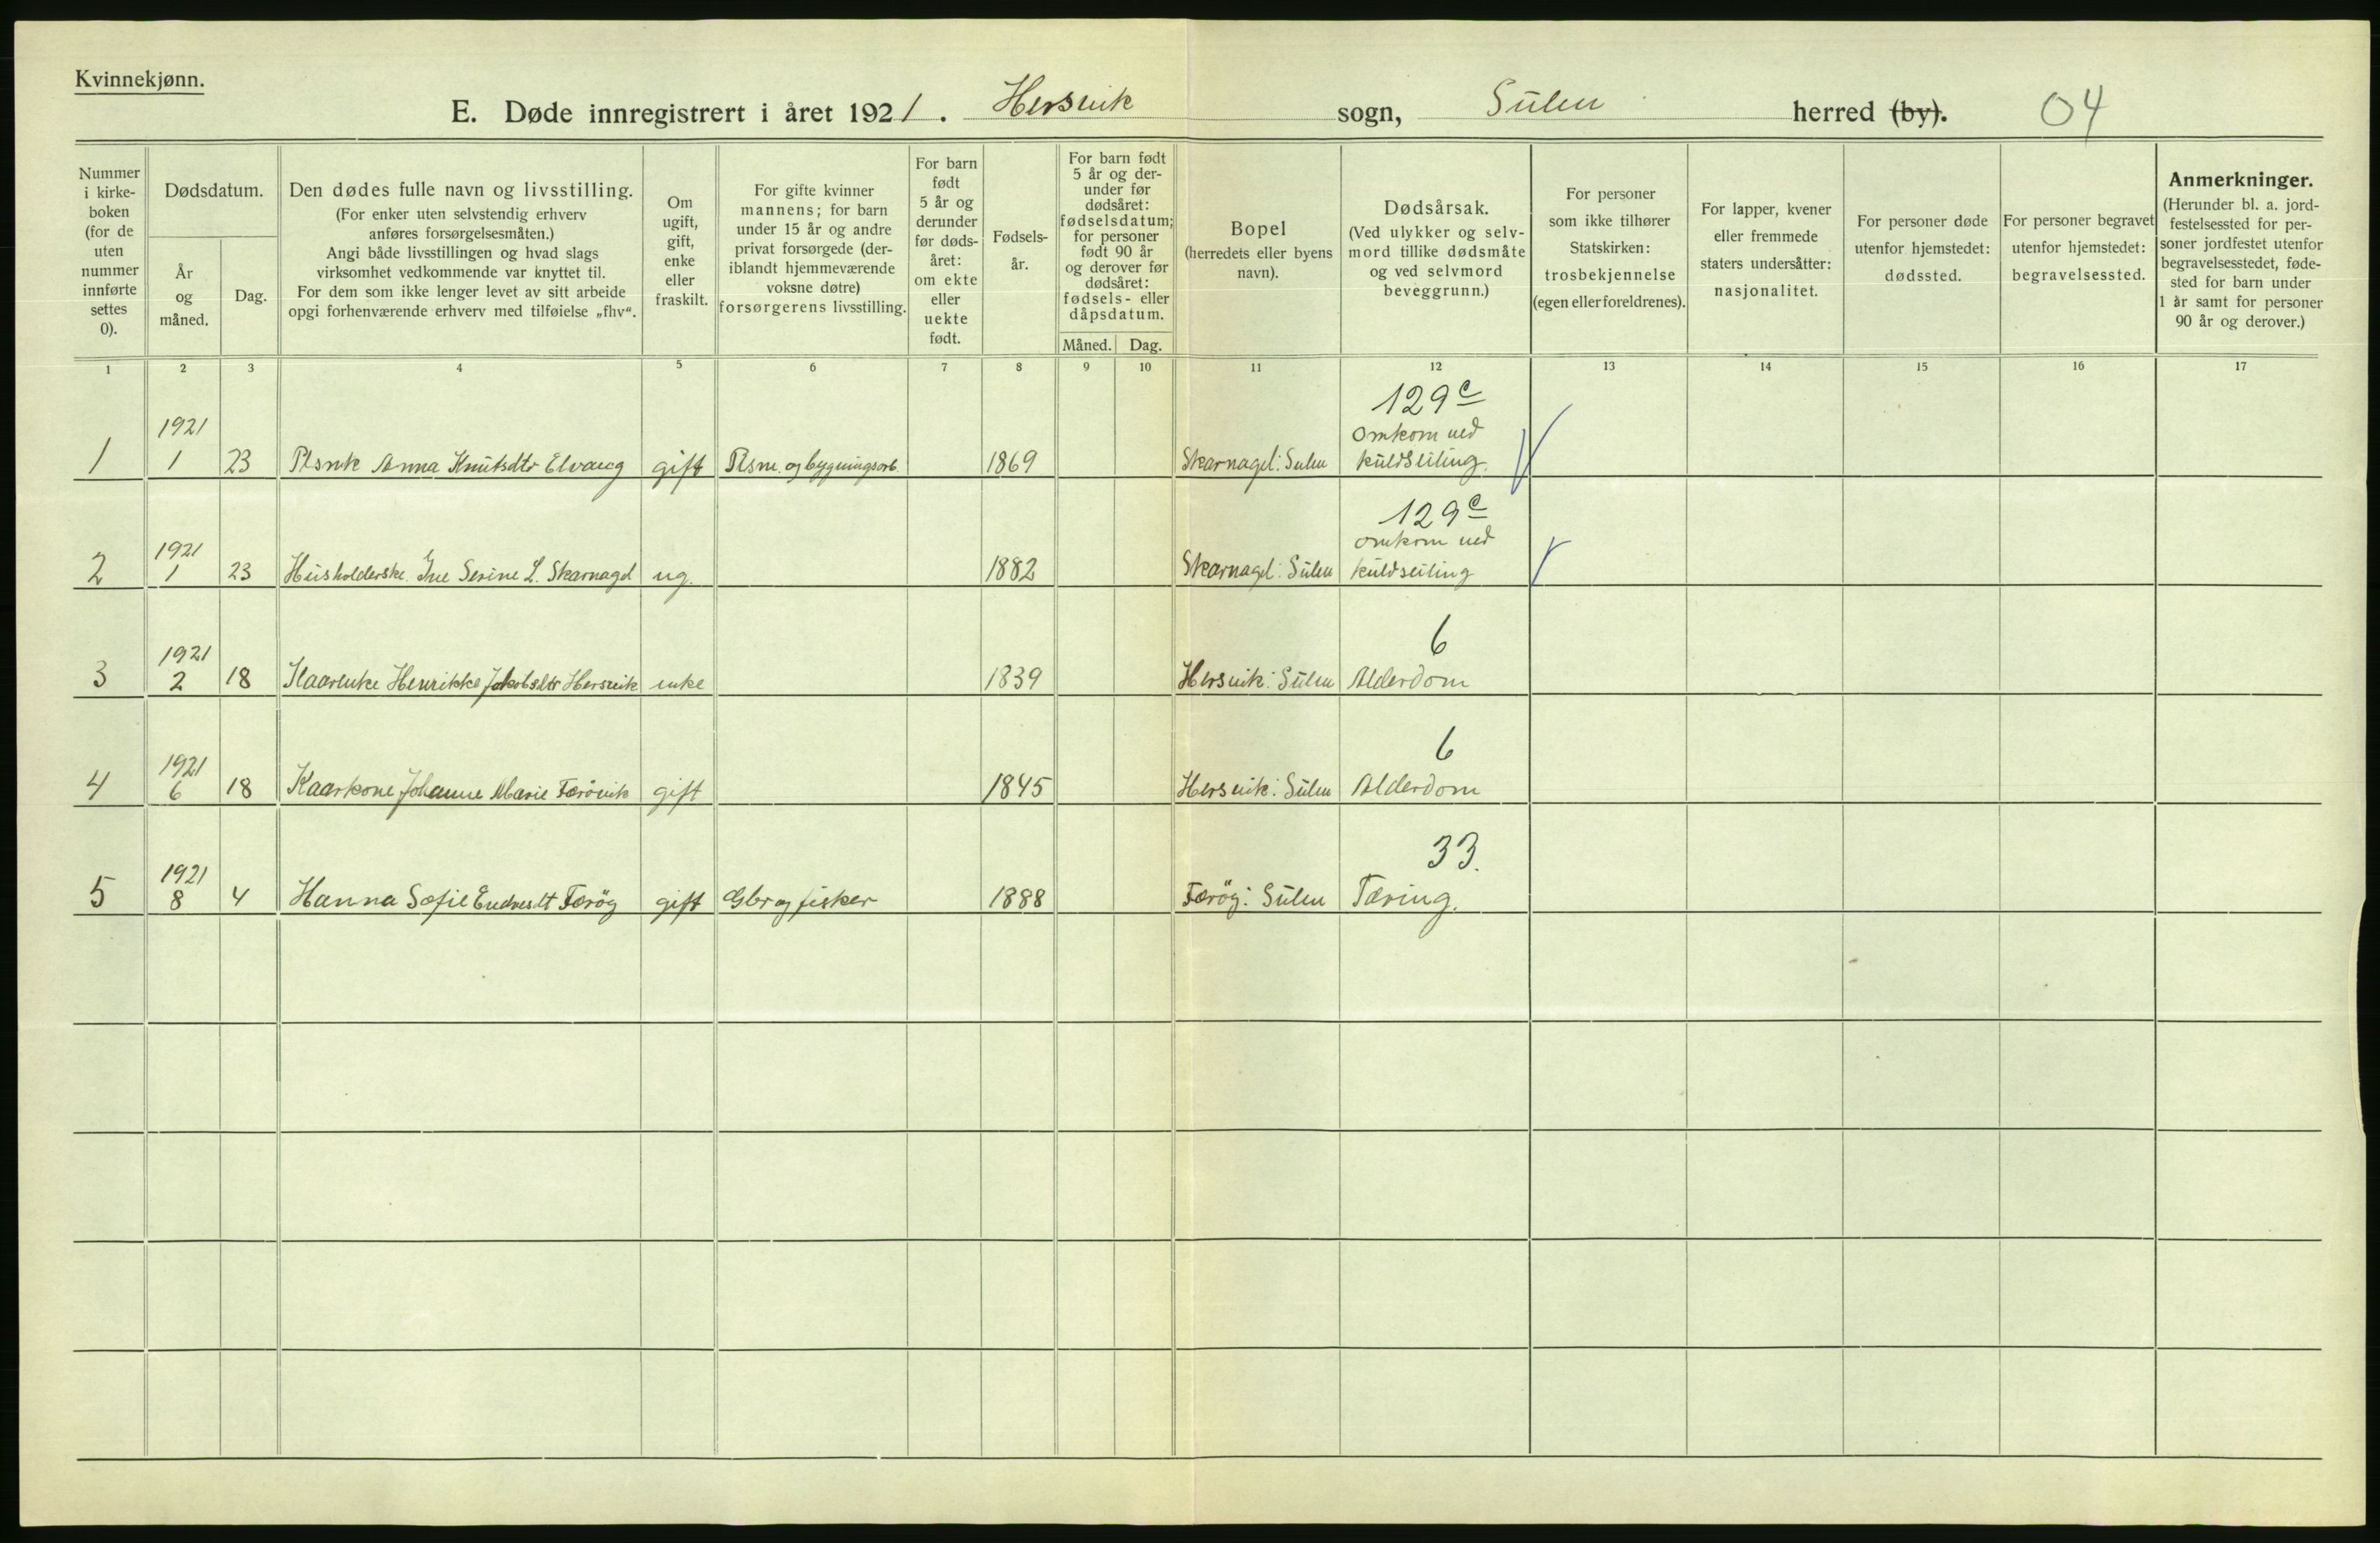 Kvinnekjønn.
E. Døde innregistrert i året 1921. Hersvik sogn, Sulen herred (by). 04
Nummer i kirke-boken (for de uten nummer innførte settes 0).
Dødsdatum.
År og måned.
Dag.
Den dødes fulle navn og livsstilling.
(For enker uten selvstendig erhverv
anføres forsørgelsesmåten.)
Angi både livsstillingen og hvad slags
virksomhet vedkommende var knyttet til.
For dem som ikke lenger levet av sitt arbeide
opgi forhenværende erhverv med tilføielse „fhv“.
Om
ugift,
gift,
enke
eller
fraskilt.
For gifte kvinner
mannens; for barn
under 15 år og andre
privat forsørgede (der-
iblandt hjemmeværende
voksne døtre)
forsørgerens livsstilling.
For barn
født
5 år og
derunder
før døds-
året:
om ekte
eller
uekte
født.
Fødsels-
år.
For barn født
5 år og der-
under før
dødsåret:
fødselsdatum;
for personer
født 90 år
og derover før
dødsåret:
fødsels- eller
dåpsdatum.
Måned. Dag.
Bopel
(herredets eller byens
navn).
Dødsårsak.
(Ved ulykker og selv-
mord tillike dødsmåte
og ved selvmord
beveggrunn.)
For personer
som ikke tilhører
Statskirken:
trosbekjennelse
(egen eller foreldrenes).
For lapper, kvener
eller fremmede
staters undersåtter:
nasjonalitet.
For personer døde
utenfor hjemstedet:
dødssted.
For personer begravet
utenfor hjemstedet:
begravelsessted.
Anmerkninger.
(Herunder bl. a. jord-
festelsessted for per-
soner jordfestet utenfor
begravelsesstedet, føde-
sted for barn under
1 år samt for personer
90 år og derover.)
1 2 3 4 5 6 7 8 9 10 11 12 13 14 15 16 17
129c
1921 omkom ved
1 1 23 Plsmk Anna Knutsdtr gift Plsm. og bygningsarb. 1869 Skarnagel: Sulen kuldseiling.
129c
1921 omkom ved
2 1 23 Husholderske Serine L. Skarnagel ug. 1882 Skarnagel: Sulen kuldseiling
1921 6
3 2 18 Kaarenke Henrikke Jakobsdtr Hersvik enke 1839 Hersvik: Sulen Alderdom
1921 6
4 6 18 Kaarkone Johanne Marie Færövik gift 1845 Hersvik: Sulen Alderdom
1921 33.
5 8 4 Hanna Sofie Færög gift Gbr og fisker 1888 Færög: Sulen Tæring.